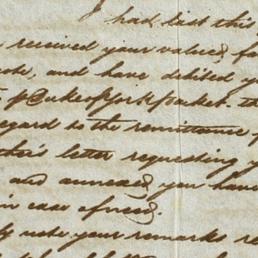 I had last this
received your valued fa
note, and have debited y
p Duke of York packet. th
regard to the remittance f
ther's letter requesting y
and annexed you have
in case of need.
note your remarks re